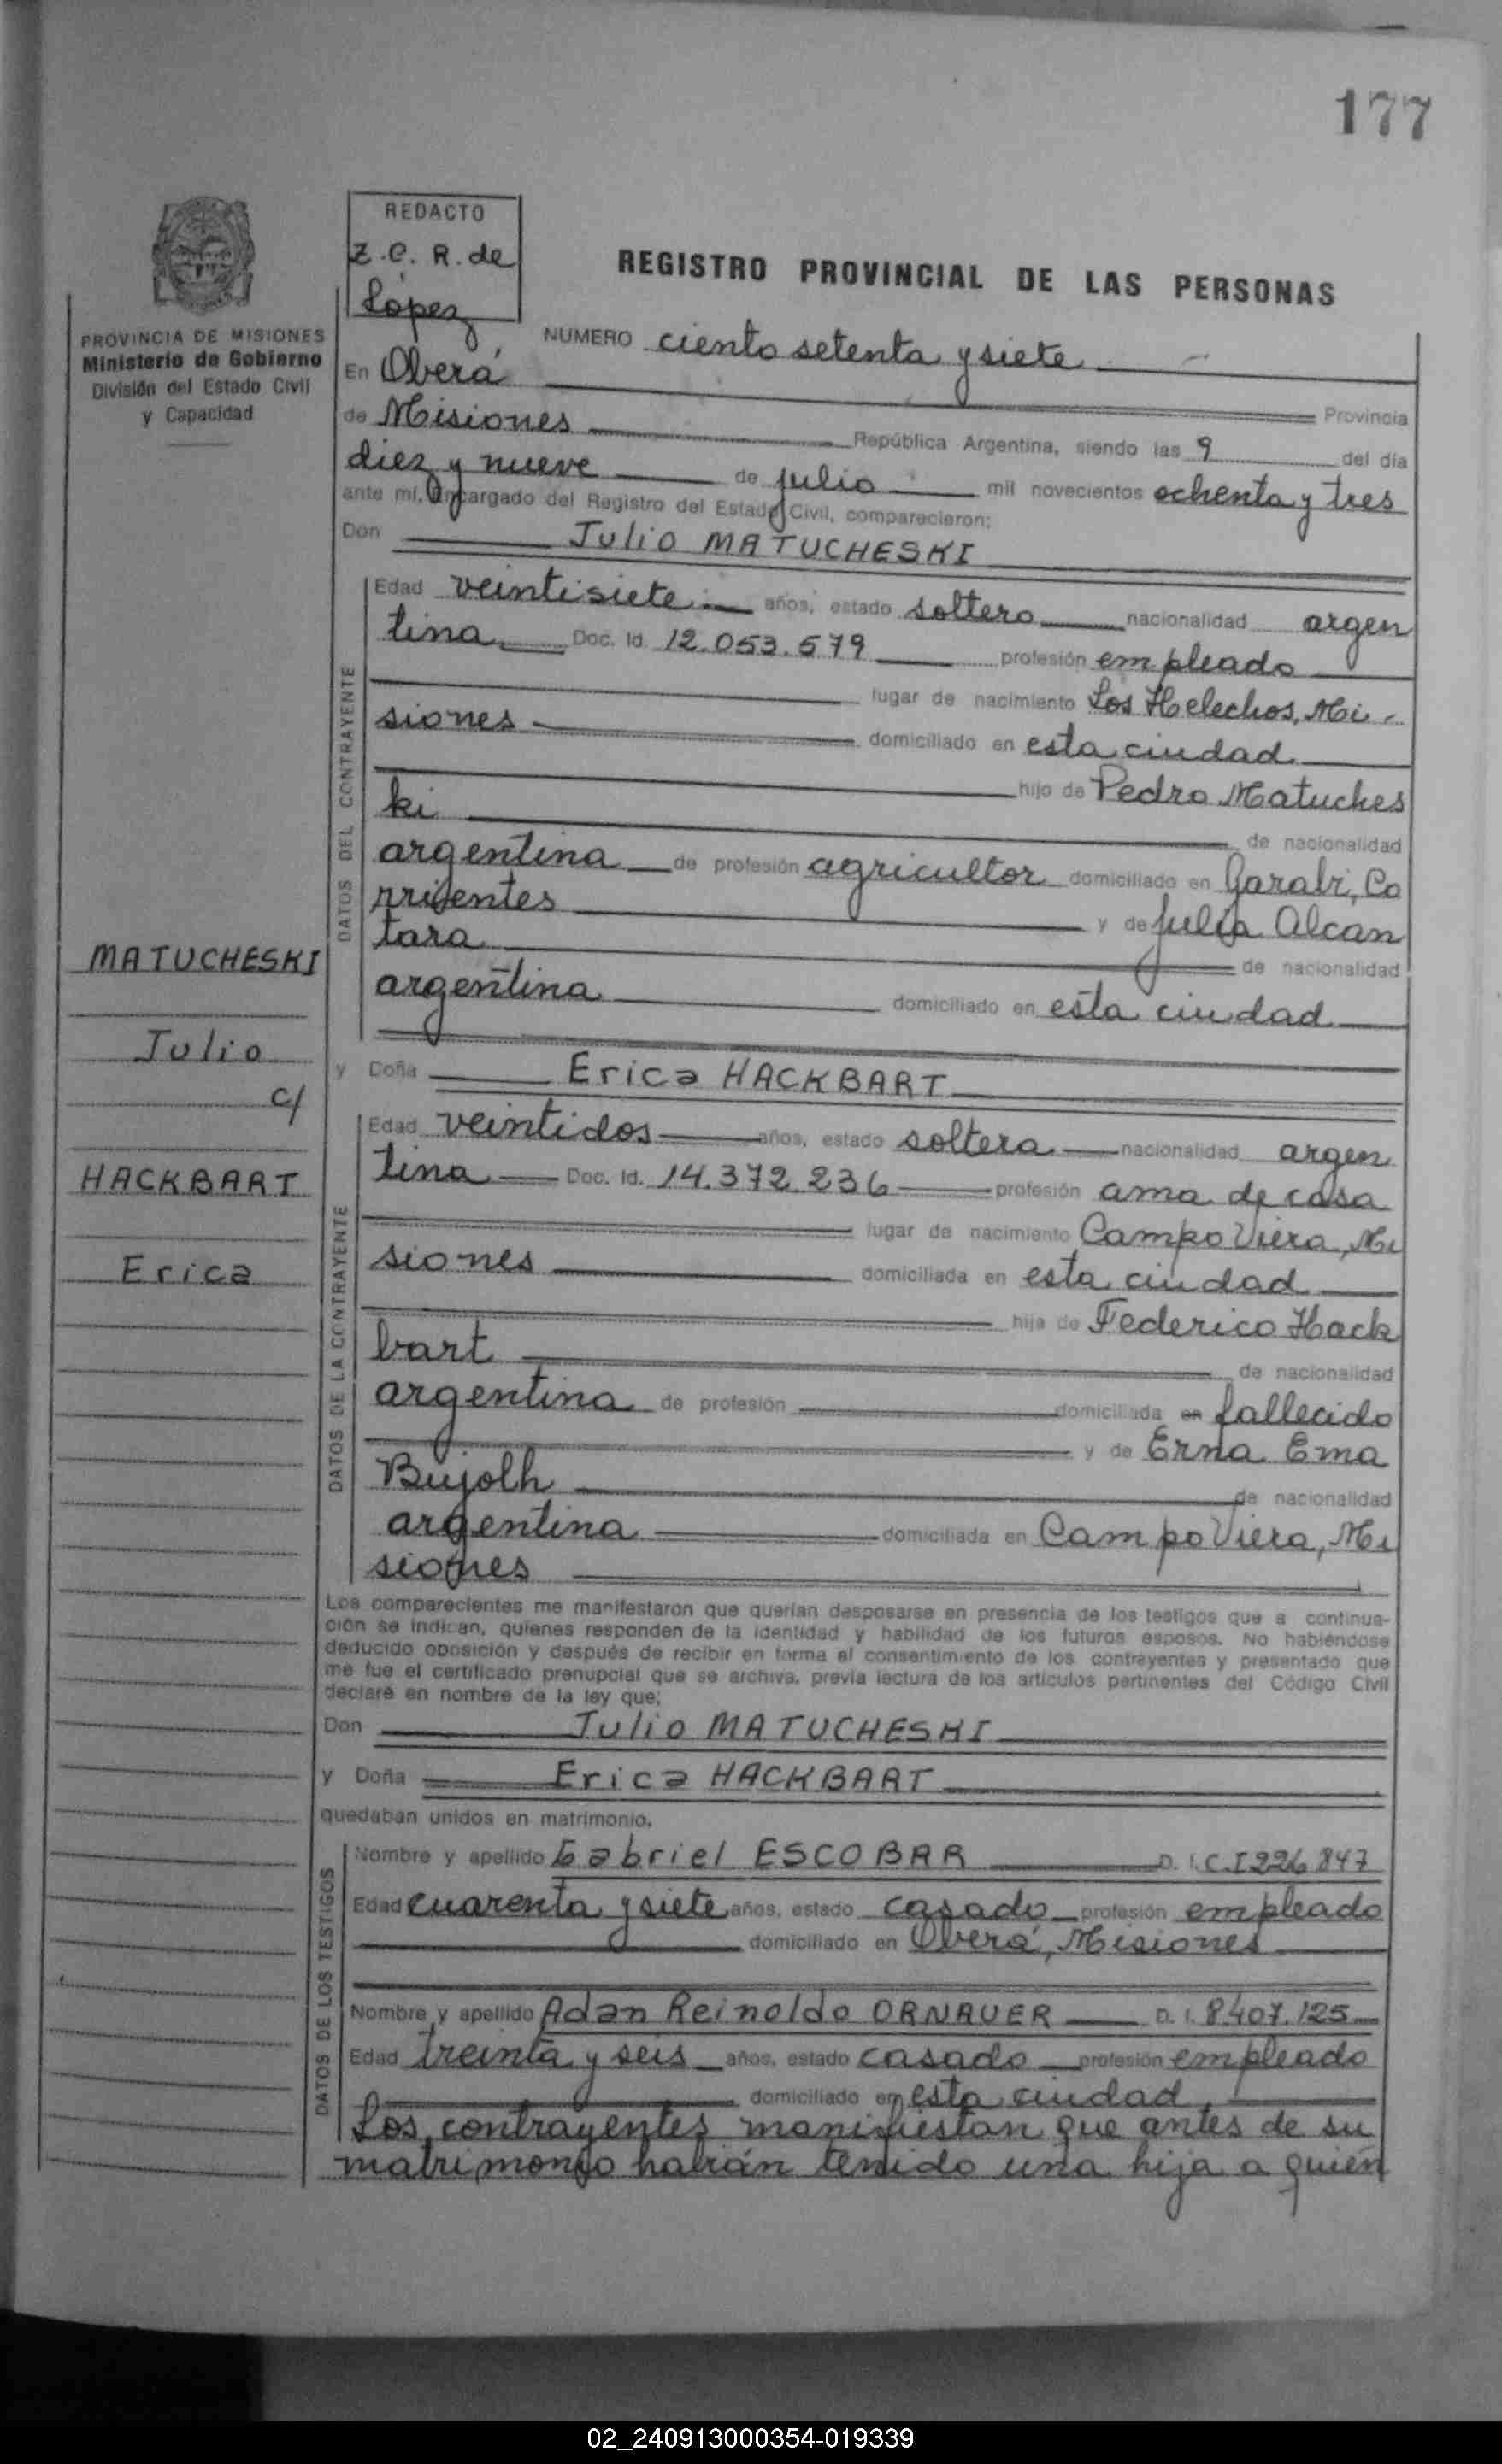 177
REDACTO
Z.C. R. de
López
REGISTRO PROVINCIAL DE LAS PERSONAS
PROVINCIA DE MISIONES
Ministerio de Gobierno
División del Estado Civil
y Capacidad
NUMERO ciento setenta y siete
En Oberá
Provincia
de Misiones República Argentina, siendo las 9 del día
diez y nueve de julio mil novecientos ochenta y tres
ante mí, Encargado del Registro del Estado Civil, comparecieron:
Don Julio MATUCHESKI
DATOS DEL CONTRAYENTE
Edad veintisiete años, estado soltero nacionalidad argen
tina Doc. Id. 12.053.579 profesión empleado
lugar de nacimiento Los Helechos, Mi-
siones domiciliado en esta ciudad
hijo de Pedro Matuches
ki de nacionalidad
argentina de profesión agricultor domiciliado en Garabí, Co
rrientes y de Julia Alcan
tara de nacionalidad
argentina domiciliado en esta ciudad
MATUCHESKI
Julio
c/
HACKBART
Erica
y Doña Erica HACKBART
DATOS DE LA CONTRAYENTE
Edad veintidos años, estado soltera nacionalidad argen
tina Doc. Id. 14.372.236 profesión ama de casa
lugar de nacimiento Campo Viera, Mi
siones domiciliada en esta ciudad
hija de Federico Hack
bart de nacionalidad
argentina de profesión domiciliada en fallecido
y de Erna Ema
Bujolh de nacionalidad
argentina domiciliada en Campo Viera, Mi
siones
Los comparecientes me manifestaron que querían desposarse en presencia de los testigos que a continua-
ción se indican, quienes responden de la identidad y habilidad de los futuros esposos. No habiéndose
deducido oposición y después de recibir en forma el consentimiento de los contrayentes y presentado que
me fue el certificado prenupcial que se archiva, previa lectura de los artículos pertinentes del Código Civil
declaré en nombre de la ley que;
Don Julio MATUCHESKI
y Doña Erica HACKBART
quedaban unidos en matrimonio.
DATOS DE LOS TESTIGOS
Nombre y apellido Gabriel ESCOBAR D. I. C.I 226 847
Edad cuarenta y siete años, estado casado profesión empleado
domiciliado en Oberá, Misiones
Nombre y apellido Adan Reinoldo ORNAUER D. I. 8.407.125
Edad treinta y seis años, estado casado profesión empleado
domiciliado en esta ciudad
Los contrayentes manifiestan que antes de su
matrimonio habían tenido una hija a quién
02_240913000354-019339